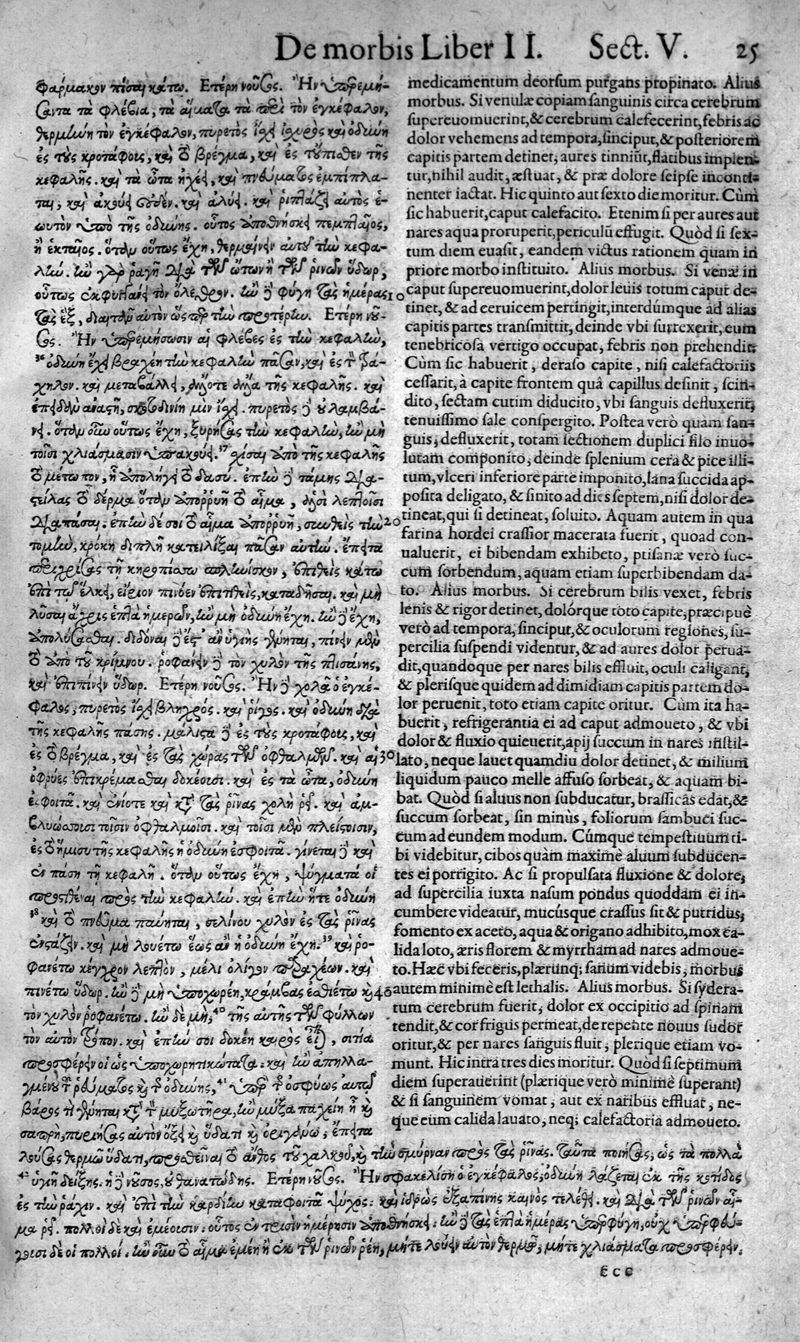 De morbis Liber II. Sect. V. 25
φάρμακον πῖσαι κάτω. Ετέρη νοῦσος. Ἢν ὑπερεμή-
σαντα τὰ φλέβια, τὰ αἵματα τὰ περὶ τὸν ἐγκέφαλον,
θερμήνῃ τὸν ἐγκέφαλον, πυρετὸς ἴσχει ἰσχυρὸς καὶ ὀδύνη
ἐς τοὺς κροτάφους, καὶ τὸ βρέγμα, καὶ ἐς τοὔπισθεν τῆς
κεφαλῆς. καὶ τὰ ὦτα ἠχέει, καὶ πνεύματος ἐμπίπλα-
ται, καὶ ἀκούει οὐδέν. καὶ ἀλύει. καὶ ῥιπτάζει αὐτὸς ἑ-
ωυτὸν ὑπὸ τῆς ὀδύνης. οὗτος ἀποθνήσκει πεμπταῖος,
ἢ ἑκταῖος. ὅταν οὕτως ἔχῃ, θερμαίνειν αὐτοῦ τὴν κεφα-
λήν. ἢν γὰρ ῥαγῇ διὰ τῶν ὤτων ἢ τῶν ῥινῶν ὕδωρ,
οὕτως ἐκφυγγάνει τὸν ὄλεθρον. ἢν δὲ φύγῃ τὰς ἡμέρας 10
τὰς ἓξ, διαιτᾶν αὐτὸν ὥσπερ τὸν προτέρων. Ετέρη νοῦ-
σος. Ἢν ὑπερεμήσωσιν αἱ φλέβες ἐς τὴν κεφαλὴν,
ὀδύνη ἔχει βραχέη τὴν κεφαλὴν πᾶσαν, καὶ ἐς τὸν τρά-
χηλον. καὶ μεταβάλλει, ἄλλοτε ἄλλῃ τῆς κεφαλῆς. καὶ
ἐπειδὰν ἀναστῇ, σκοτοδινίη μιν ἴσχει. πυρετὸς δὲ οὐ λαμβά-
νει. ὅταν οὖν οὕτως ἔχῃ, ξυρήσας τὴν κεφαλὴν, ἢν μὴ
τοῖσι χλιάσμασιν ὑπακούῃ. σχίσαι ἀπὸ τῆς κεφαλῆς
τὸ μέτωπον, ᾗ ἀπολήγει τὸ δασύ. ἐπὴν δὲ τάμῃς δια-
στείλας τὸ δέρμα ὅταν ἀποῤῥυῇ τὸ αἷμα, ἁλσὶ λεπτοῖσι
διαπάσαι. ἐπὴν δέ σοι τὸ αἷμα ἀποῤῥυῇ, συνθεὶς τὴν 20
τομὴν, κρόκῃ διπλῇ κατειλίξαι πᾶσαν αὐτήν. ἔπειτα
περιχρίσας τῇ κηροπίσσῳ σπληνίσκον, ἐπιθεὶς κάτω
ἐπὶ τῷ ἕλκει, εἴριον πινόεν ἐπιθεὶς, καταδῆσαι. καὶ μὴ
λῦσαι ἄχρις ἑπτὰ ἡμερέων, ἢν μὴ ὀδύνη ἔχῃ. ἢν δὲ ἔχῃ,
ἀπολύσασθαι. διδόναι δὲ ἔστ' ἂν ὑγιὴς γένηται, πίνειν μὲν
τὸ ἀπὸ τοῦ κρίμνου. ῥοφάνειν δὲ τὸν χυλὸν τῆς πτισάνης,
καὶ ἐπιπίνειν ὕδωρ. Ετέρη νοῦσος. Ἢν δὲ χολᾷ ὁ ἐγκέ-
φαλος, πυρετὸς ἴσχει βληχρός. καὶ ῥῖγος. καὶ ὀδύνη διὰ
τῆς κεφαλῆς πάσης. μάλιστα δὲ ἐς τοὺς κροτάφους, καὶ
ἐς τὸ βρέγμα, καὶ ἐς τὰς χώρας τῶν ὀφθαλμῶν. καὶ αἱ 30
ὀφρύες ἐπικρέμασθαι δοκέουσι. καὶ ἐς τὰ ὦτα, ὀδύνη
ἐσφοιτᾷ. καὶ ἐνίοτε καὶ κατὰ τὰς ῥῖνας χολὴ ῥεῖ. καὶ ἀμ-
βλυώσσουσι τοῖσιν ὀφθαλμοῖσι. καὶ τοῖσι μὲν πλείστοισιν,
ἐς τὸ ἥμισυ τῆς κεφαλῆς ἡ ὀδύνη ἐσφοιτᾷ. γίνεται δὲ καὶ
ἐν πάσῃ τῇ κεφαλῇ. ὅταν οὕτως ἔχῃ, ψύγματά οἱ
προστιθέναι πρὸς τὴν κεφαλήν. καὶ ἐπὴν ἥ τε ὀδύνη
καὶ τὸ πνεῦμα παύηται, σελίνου χυλὸν ἐς τὰς ῥῖνας
ἐνστάζειν. καὶ μὴ λουέτω ἕως ἂν ἡ ὀδύνη ἔχῃ. καὶ ῥο-
φανέτω κέγχρον λεπτὸν, μέλι ὀλίγον παραχέων. καὶ
πινέτω ὕδωρ. ἢν δὲ μὴ ὑποχωρέῃ, κράμβας ἐσθιέτω καὶ 40
τὸν χυλὸν ῥοφανέτω. ἢν δὲ μὴ, τῆς ἀκτῆς τῶν φύλλων
τὸν αὐτὸν τρόπον. καὶ ἐπήν σοι δοκέῃ καιρὸς εἶναι, σιτία
προσφέρειν οἱ ὡς ὑποχωρητικώτατα. καὶ ἢν ἀπηλλα-
γμένου τοῦ ῥεύματος καὶ τῆς ὀδύνης, ὑπὲρ τῆς ὀσφύος αὐτῷ
βάρος τι γένηται κατὰ τὸν μυξωτῆρα, ἢν μύξα παχείη ᾖ καὶ
σαπρὴ, πυριήσας αὐτὸν ὄξει καὶ ὕδατι καὶ ὀριγάνῳ, ἔπειτα
λούσας θερμῷ ὕδατι, προσθεῖναι τὸ ἄνθος τοῦ χαλκοῦ, καὶ τὴν σμύρναν πρὸς τὰς ῥῖνας. ταῦτα ποιήσας, ὡς τὰ πολλὰ
ὑγιῆ δείξεις. ἡ δὲ νοῦσος, οὐ θανατώδης. Ετέρη νοῦσος. Ἢν σφακελίσῃ ὁ ἐγκέφαλος, ὀδύνη λάζεται ἐκ τῆς κοτίδος
ἐς τὴν ῥάχιν. καὶ ἐπὶ τὴν καρδίην καταφοιτᾷ ψῦχος. καὶ ἱδρὼς ἐξαπίνης καινὸς τελέθει. καὶ διὰ τῶν ῥινῶν αἷ-
μα ῥεῖ. πολλοὶ δὲ καὶ ἐμέουσιν. οὗτος ἐν τρισὶν ἡμέρῃσιν ἀποθνήσκει. ἢν δὲ τὰς ἑπτὰ ἡμέρας ὑπερφύγῃ, οὐχ ὑπερφεύ-
γουσι δὲ οἱ πολλοί. ἢν οὖν τὸ αἷμα ἐμέῃ ἢ ἐκ τῶν ῥινῶν ῥέῃ, μήτε λούειν αὐτὸν θερμῷ, μήτε χλιάσματα προσφέρειν.
medicamentum deorsum purgans propinato. Alius
morbus. Si venulæ copiam sanguinis circa cerebrum
supereuomuerint, & cerebrum calefecerint, febris ac
dolor vehemens ad tempora, sinciput, & posteriorem
capitis partem detinet, aures tinniūt, flatibus implen-
tur, nihil audit, æstuat, & præ dolore seipse inconti-
nenter iactat. Hic quinto aut sexto die moritur. Cùm
sic habuerit, caput calefacito. Etenim si per aures aut
nares aqua proruperit, periculū effugit. Quòd si sex-
tum diem euasit, eandem victus rationem quam in
priore morbo instituito. Alius morbus. Si venæ in
caput supereuomuerint, dolor leuis totum caput de-
tinet, & ad ceruicem pertingit, interdúmque ad alias
capitis partes transmittit, deinde vbi surrexerit, eum
tenebricosa vertigo occupat, febris non prehendit.
Cùm sic habuerit, deraso capite, nisi calefactoriis
cessarit, à capite frontem quâ capillus desinit, scin-
dito, sectam cutim diducito, vbi sanguis defluxerit,
tenuissimo sale conspergito. Postea verò quam san-
guis defluxerit, totam sectionem duplici filo inuo-
lutam componito, deinde splenium cera & pice illi-
tum, vlceri inferiore parte imponito, lana succida ap-
posita deligato, & sinito ad dies septem, nisi dolor de-
tineat, qui si detineat, soluito. Aquam autem in qua
farina hordei crassior macerata fuerit, quoad con-
ualuerit, ei bibendam exhibeto, ptisanæ verò suc-
cum sorbendum, aquam etiam superbibendam da-
to. Alius morbus. Si cerebrum bilis vexet, febris
lenis & rigor detinet, dolórque toto capite, præcipuè
verò ad tempora, sinciput, & oculorum regiones, su-
percilia suspendi videntur, & ad aures dolor perua-
dit, quandoque per nares bilis effluit, oculi caligant,
& plerisque quidem ad dimidiam capitis partem do-
lor peruenit, toto etiam capite oritur. Cùm ita ha-
buerit, refrigerantia ei ad caput admoueto, & vbi
dolor & fluxio quieuerit, apij succum in nares instil-
lato, neque lauet quamdiu dolor detinet, & milium
liquidum pauco melle affuso sorbeat, & aquam bi-
bat. Quòd si aluus non subducatur, brassicas edat, &
succum sorbeat, sin minùs, foliorum sambuci suc-
cum ad eundem modum. Cúmque tempestiuum ti-
bi videbitur, cibos quàm maximè aluum subducen-
tes ei porrigito. Ac si propulsata fluxione & dolore,
ad supercilia iuxta nasum pondus quoddam ei in-
cumbere videatur, mucúsque crassus sit & putridus,
fomento ex aceto, aqua & origano adhibito, mox ca-
lida loto, æris florem & myrrham ad nares admoue-
to. Hæc vbi feceris, plærunq; sanum videbis, morbus
autem minimè est lethalis. Alius morbus. Si sydera-
tum cerebrum fuerit, dolor ex occipitio ad spinam
tendit, & cor frigus permeat, de repente nouus sudor
oritur, & per nares sanguis fluit, plerique etiam vo-
munt. Hic intra tres dies moritur. Quòd si septimum
diem superauerint (plærique verò minimè superant)
& si sanguinem vomat, aut ex naribus effluat, ne-
que cum calida lauato, neq; calefactoria admoueto.
Ecc